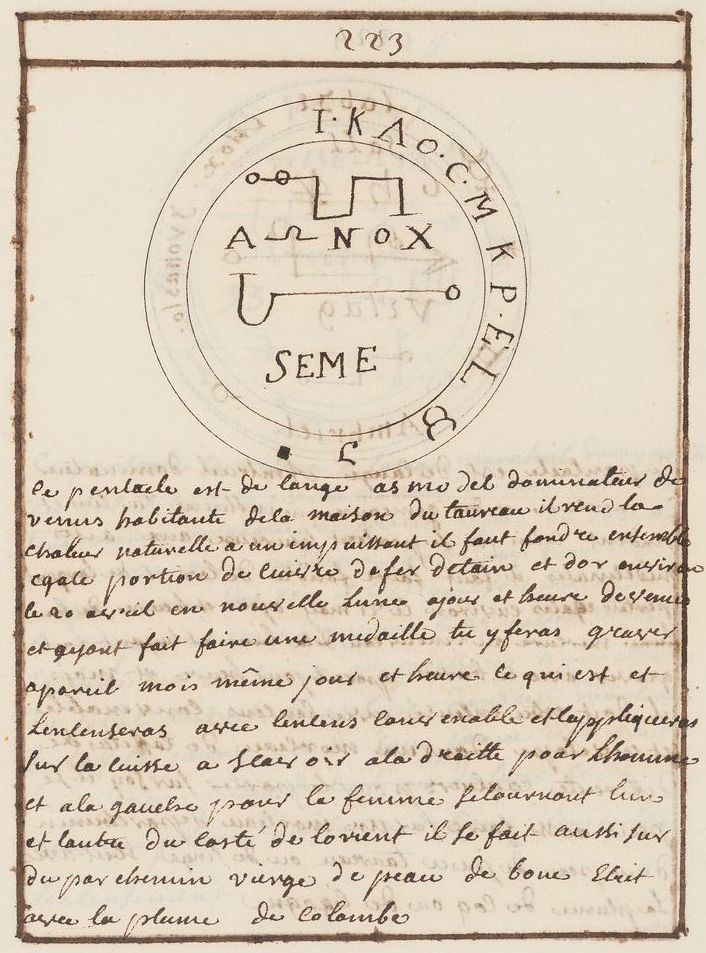 223
I·KΛO·C·MKP·ELB
A Ω N O X
SEME
ce pentacle est de lange asmodel dominateur de
venus habitante dela maison du taureau il rend la
chaleur naturelle a un impuissant il faut fondre ensemble
egale portion de cuivre de fer detain et dor environ
le 20 avril en nouvelle Lune ajour et heure de venus
et ayant fait faire une medaille tu y feras graver
apareil mois même jour et heure ce qui est et
Lenlenseras avec lenlens convenable et lappliqueras
sur la cuisse a scavoir ala droitte pour Lhomme
et ala gauche pour la femme se tournant lun
et lautre du costé de lorient il se fait aussi sur
du parchemin vierge de peau de bouc Ecrit
avec la plume de Colombe